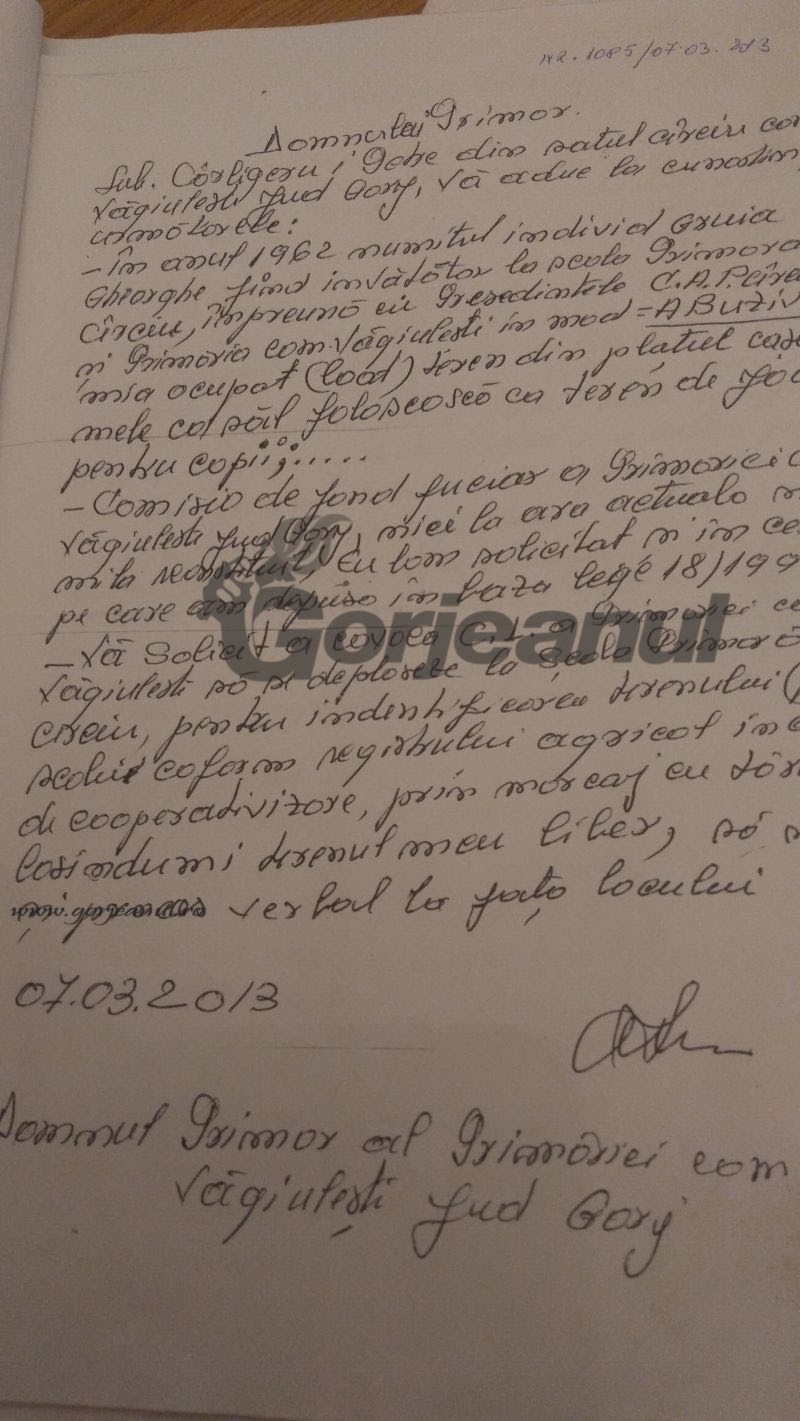 nr. 1085/07.03.2013
Domnului Primar.
Sub. Cârligeru i Gobe din satul Cîrciu com
Văgiulești Jud Gorj, vă aduc la cunoștin
următorele:
- În anul 1962 numitul individ Gruia
Gheorghe fiind învățător la scola Primara
Cîrciu, împreună cu Președintele C.A.P. Cîrc
și Primăria com. Văgiulești în mod = ABUZIV
mia ocupat (load) teren din platul case
mele ca săîl foloseoscă ca terén de joa
pentru copii;.....
- Comisio de fond fuciar a Primăriei c
Văgiulești Jud Gorj, nici la ora actualo n
mila reconstituit, Eu lom solicitat și în ce
pe care am depuso în baza lege 18/199
- Vă Solicit a covoca C.L. a Primăriei co
Văgiulești să se deploseze la Școla Primară
Cîrciu, pentru indentificarea terenului (
scolii coform registrului agricol înc
de cooperativizore, prin morcaj cu țăr
Lasîndumi terenul meu liber, să s
verbal la fața locului
www.gorjeanul.ro
Gorjeanul
07.03.2013
Domnul Primar al Primăriei com
Văgiulești Jud Gorj